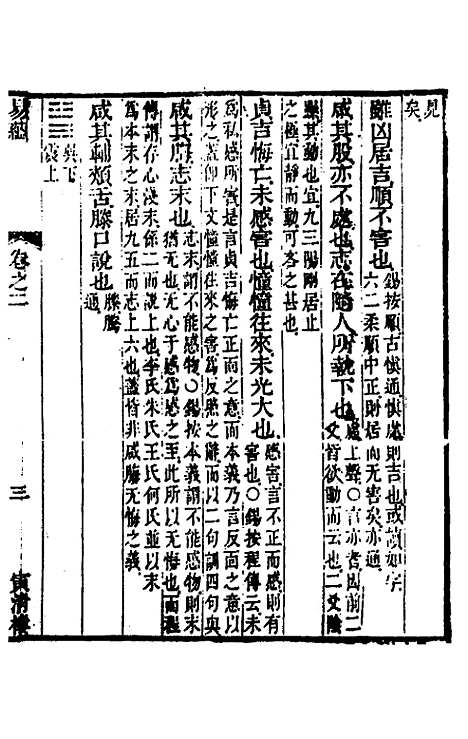 見
矣
雖凶居吉順不害也錫按順古慎通慎處則吉也或讀如字
六二柔順中正則居而无害矣亦通
咸其股亦不處也志在隨人所執下也處上聲〇言亦者因前二
爻皆欲動而云也二爻陰
躁其動也宜九三陽剛居止
之極宜靜而動可吝之甚也
貞吉悔亡未感害也憧憧往來未光大也感害言不正而感則有
害也〇錫按程傳云未
爲私感所害是言貞吉悔亡正面之意而本義乃言反面之意以
形之蓋仰下文憧憧往來之害爲反照之辭而以二句訓四句與
咸其脢志末也志末謂不能感物〇錫按本義謂不能感物則末
猶无也无心于感爲感之至此所以无悔也而程
傳謂存心淺末係二而說上也李氏朱氏王氏何氏並以末
爲本末之末居九五而志上六也蓋皆非咸脢无悔之義
咸其輔頰舌滕口說也滕騰
通
巽下
震上
易經
卷之二
三
寶清樓